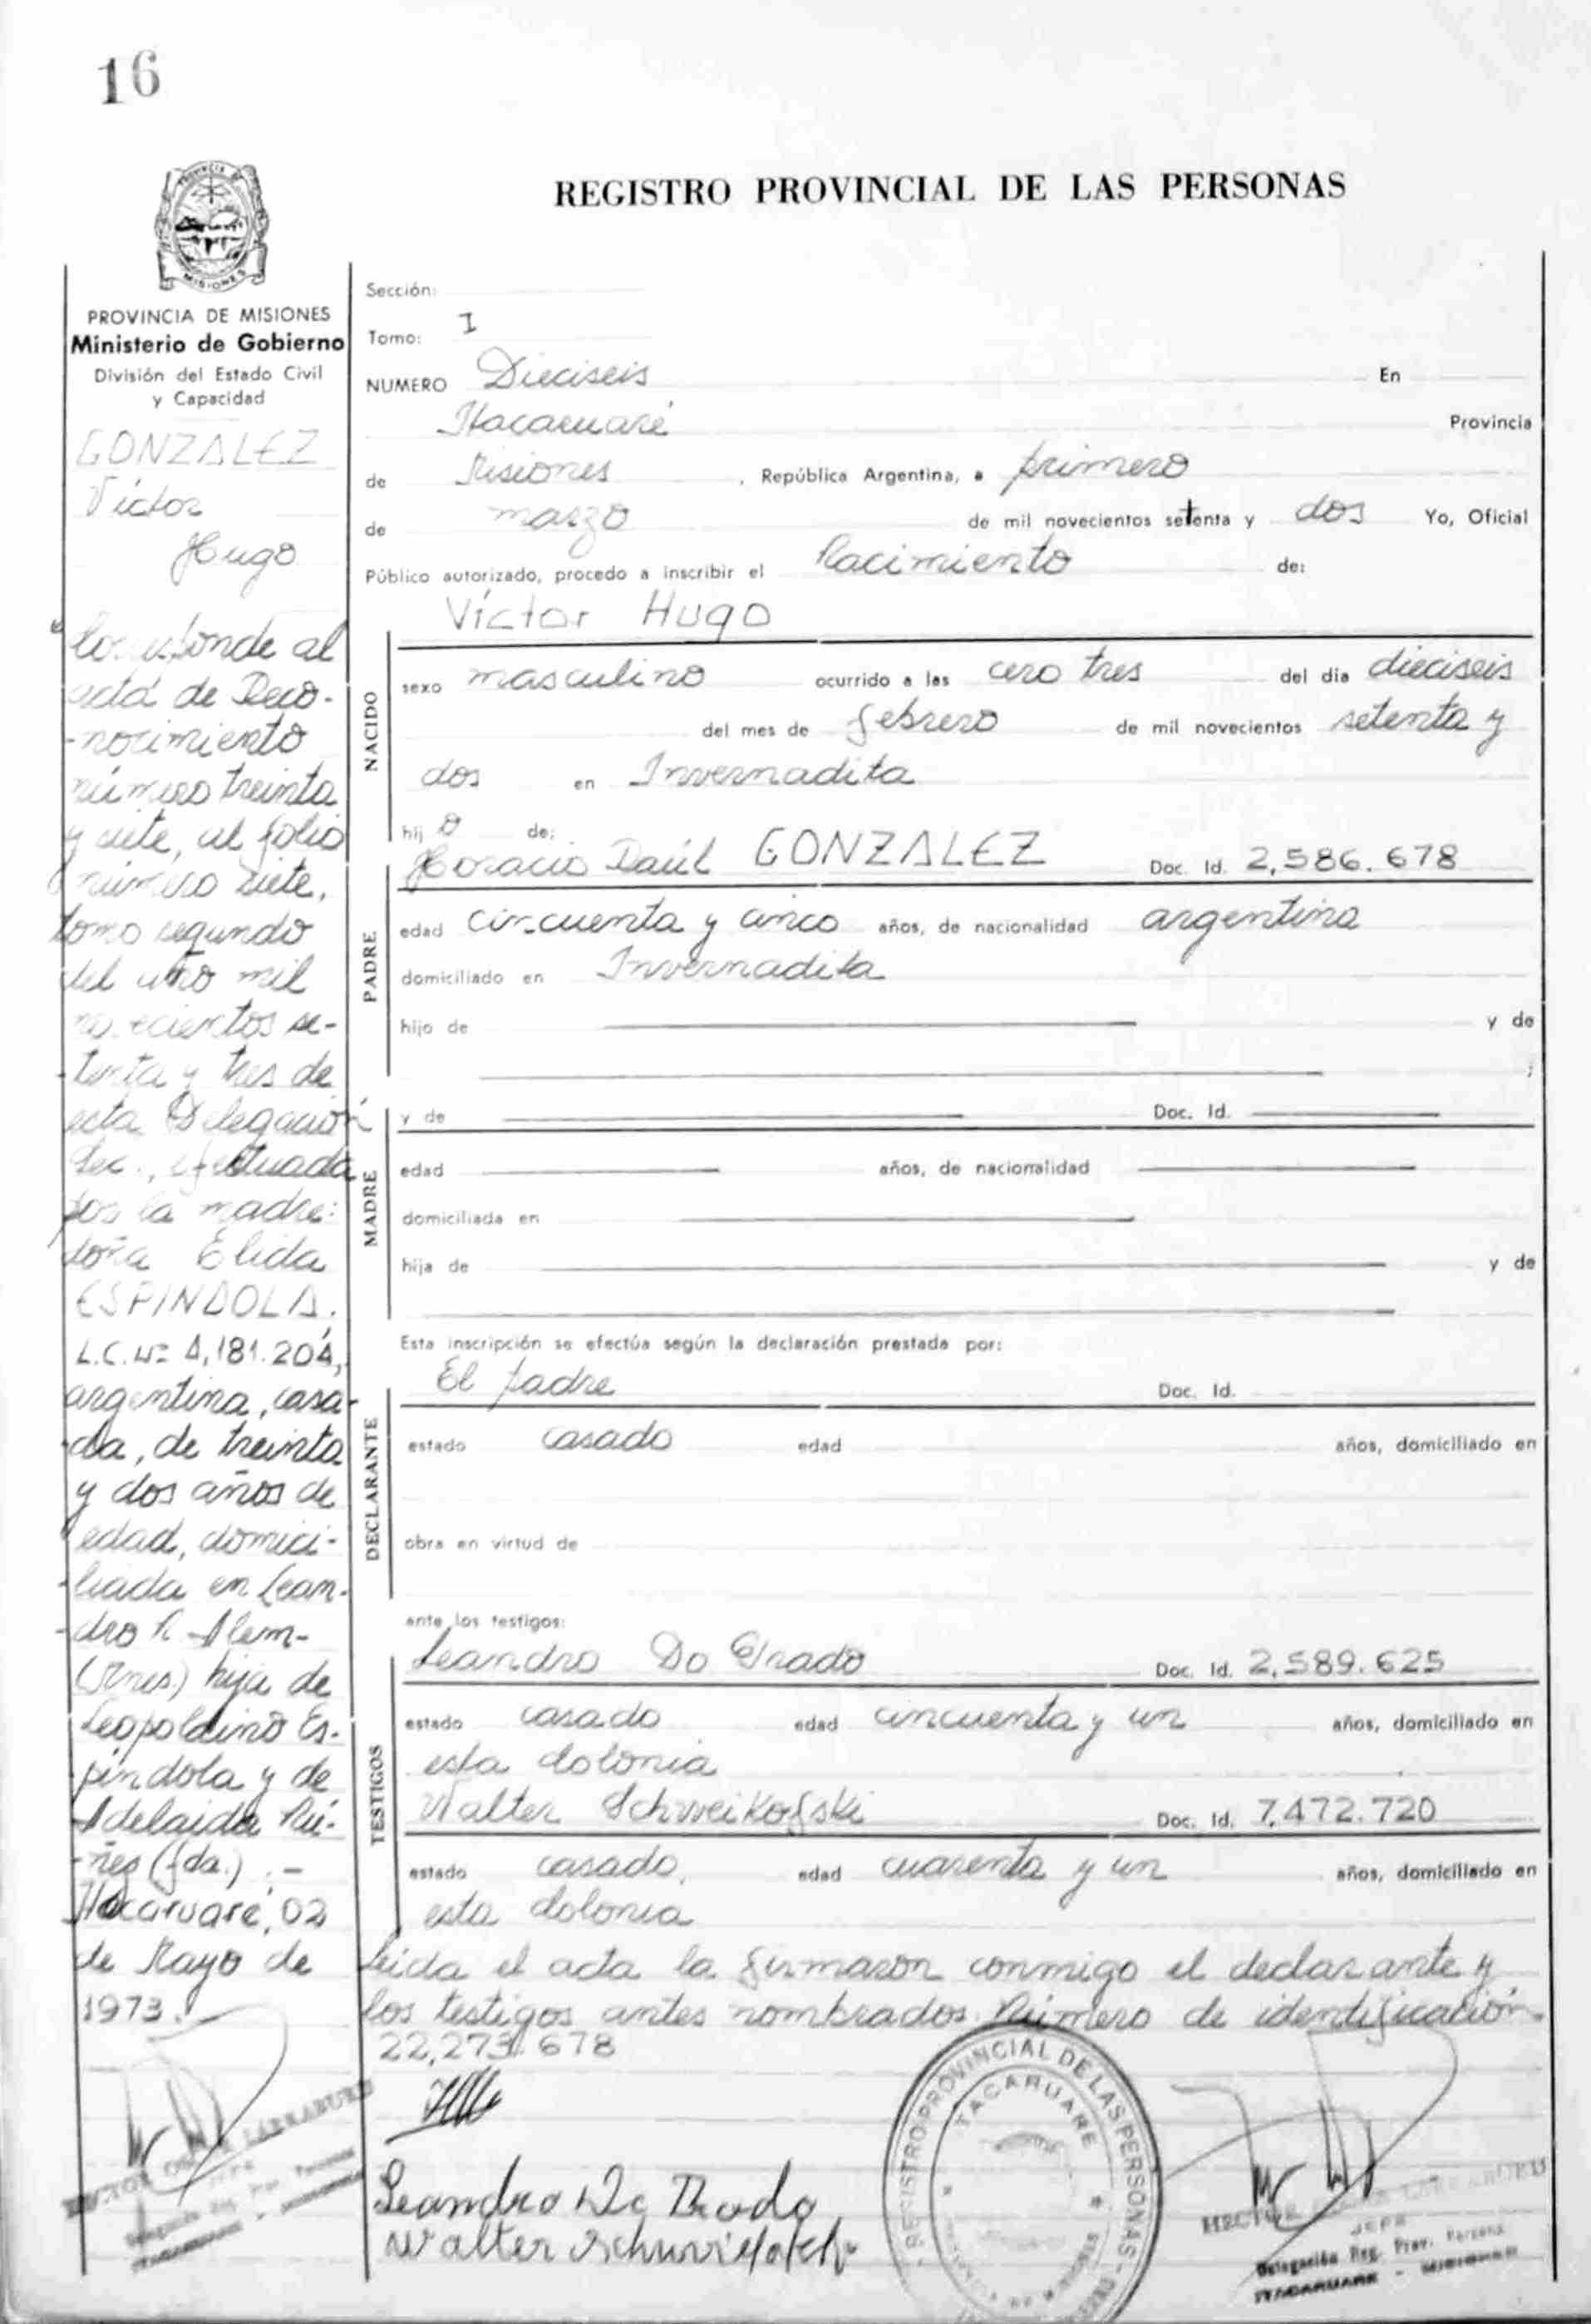 16
PROVINCIA DE MISIONES
REGISTRO PROVINCIAL DE LAS PERSONAS
PROVINCIA DE MISIONES
Ministerio de Gobierno
División del Estado Civil
y Capacidad
GONZALEZ
Víctor
Hugo
Corresponde al
acta de Reco-
-nocimiento
número treinta
y siete, al folio
número siete,
tomo segundo
del año mil
novecientos se-
-tenta y tres de
esta Delegación
Sec., efectuada
por la madre:
doña Elida
ESPINDOLA.
L.C. Nº 4,181.204,
argentina, casa-
-da, de treinta
y dos años de
edad, domici-
-liada en Lean-
-dro N. Alem-
(Mnes.) hija de
Leopoldino Es-
píndola y de
Adelaida Nú-
-ñes (fda.).-
Itacaruaré, 02
de Mayo de
1973.
Sección:
Tomo: I
NUMERO Dieciseis En
Itacaruaré Provincia
de Misiones, República Argentina, a primero
de marzo de mil novecientos setenta y dos Yo, Oficial
Público autorizado, procedo a inscribir el Nacimiento de:
Víctor Hugo
NACIDO
sexo masculino ocurrido a las cero tres del dia dieciseis
del mes de febrero de mil novecientos setenta y
dos en Invernadita
hijo de:
Horacio Raúl GONZALEZ Doc. Id. 2,586.678
PADRE
edad cincuenta y cinco años, de nacionalidad argentina
domiciliado en Invernadita
hijo de y de
;
y de Doc. Id.
MADRE
edad años, de nacionalidad
domiciliada en
hija de y de
Esta inscripción se efectúa según la declaración prestada por:
El padre Doc. Id.
DECLARANTE
estado casado edad años, domiciliado en
obra en virtud de
ante los testigos:
Leandro Do Prado Doc. Id. 2,589.625
TESTIGOS
estado casado edad cincuenta y un años, domiciliado en
esta Colonia
Walter Schweikofski Doc. Id. 7,472.720
estado casado, edad cuarenta y un años, domiciliado en
esta Colonia
Leida el acta la firmaron conmigo el declarante y
los testigos antes nombrados. Número de identificación
22,273.678
Leandro Do Prado
Walter
REGISTRO PROVINCIAL DE LAS PERSONAS
ITACARUARE
HECTOR LARRABURU
JEFE
Delegación Reg. Prov. Persona
ITACARUARE - MISIONES